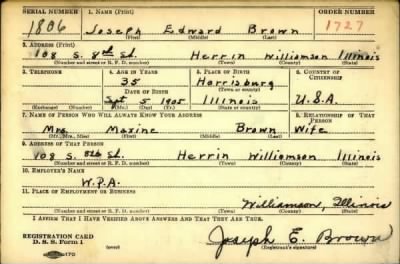 SERIAL NUMBER 1. NAME (Print) ORDER NUMBER
1806 Joseph Edward Brown 1727
(First) (Middle) (Last)
2. ADDRESS (Print)
108 S. 8th St. Herrin Williamson Illinois
(Number and street or R. F. D. number) (Town) (County) (State)
3. TELEPHONE 4. AGE IN YEARS 5. PLACE OF BIRTH 6. COUNTRY OF CITIZENSHIP
35 Harrisburg
DATE OF BIRTH (Town or county)
Sept 5 1905 Illinois U.S.A.
(Exchange) (Number) (Mo.) (Day) (Yr.) (State or country)
7. NAME OF PERSON WHO WILL ALWAYS KNOW YOUR ADDRESS 8. RELATIONSHIP OF THAT PERSON
Mrs. Maxine Brown Wife
(Mr., Mrs., Miss) (First) (Middle) (Last)
9. ADDRESS OF THAT PERSON
108 S. 8th St. Herrin Williamson Illinois
(Number and street or R. F. D. number) (Town) (County) (State)
10. EMPLOYER'S NAME
W.P.A.
11. PLACE OF EMPLOYMENT OR BUSINESS
Williamson, Illinois
(Number and street or R. F. D. number) (Town) (County) (State)
I AFFIRM THAT I HAVE VERIFIED ABOVE ANSWERS AND THAT THEY ARE TRUE.
REGISTRATION CARD
D. S. S. Form 1 (over) Joseph E. Brown
(Registrant's signature)